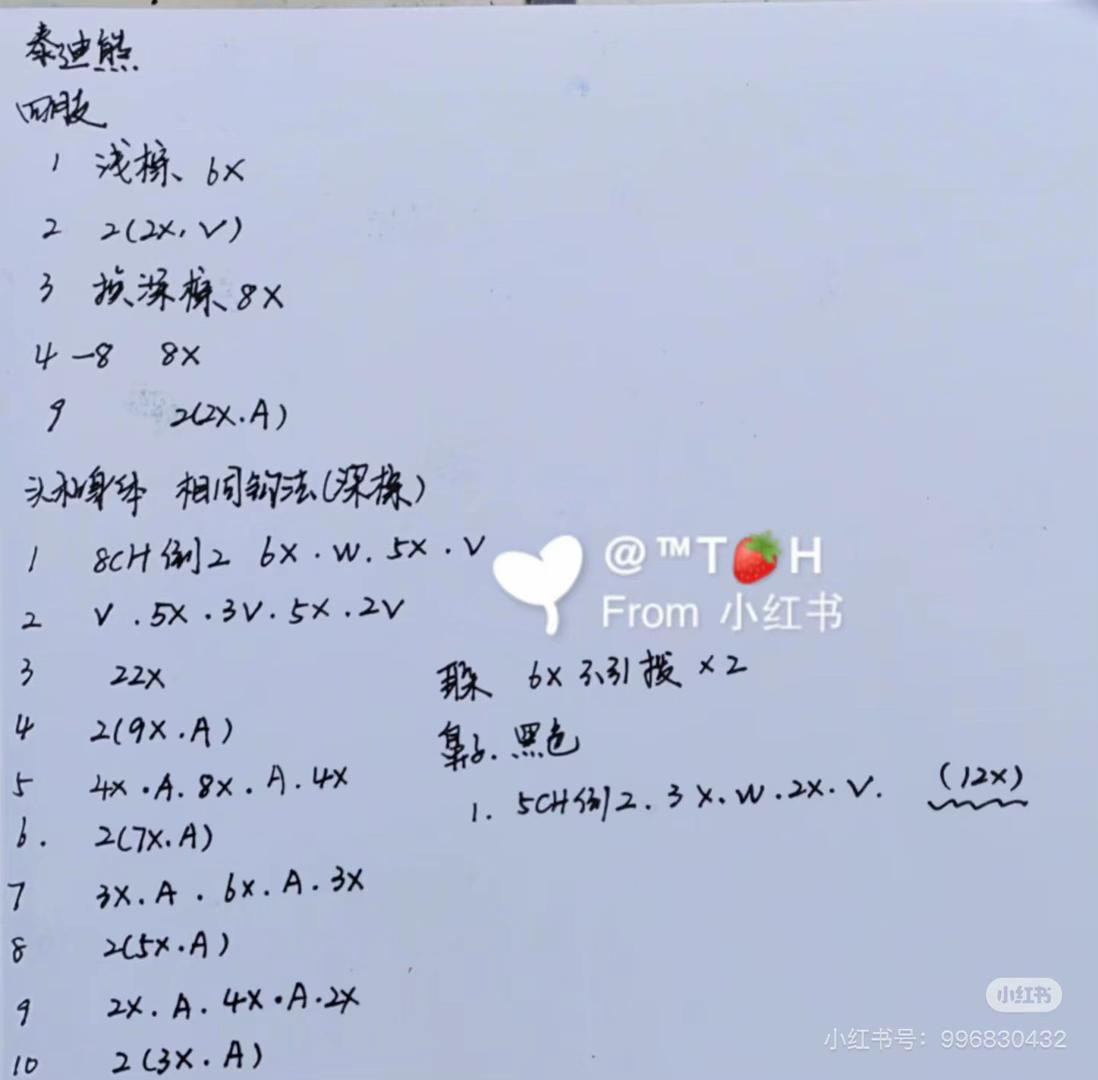 泰迪熊
四肢
1 浅棕、6X
2 2(2X, V)
3 换深棕、8X
4-8 8X
9 2(2X.A)
头和身体 相同钩法(深棕)
1 8CH倒2 6X.W.5X.V
2 V.5X.3V.5X.2V
3 22X
4 2(9X.A)
5 4X.A.8X.A.4X
6. 2(7X.A)
7 3X.A.6X.A.3X
8 2(5X.A)
9 2X.A.4X.A.2X
10 2(3X.A)
@™T🍓H
From 小红书
耳朵 6X 不引拔 ×2
鼻子.黑色
1. 5CH倒2.3X.W.2X.V. (12X)
小红书
小红书号：996830432